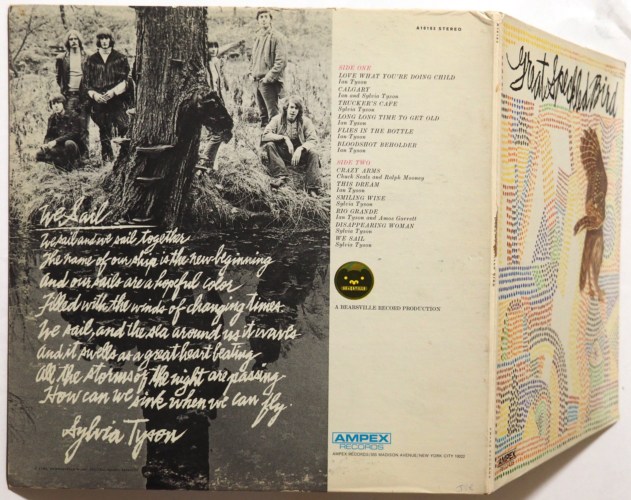 We Sail
We sail and we sail together
The name of our ship is the new beginning
And our sails are a hopeful color
Filled with the winds of changing times.
We sail, and the sea around us it waves
and it swells as a great heart beating
All the storms of the night are passing
How can we sink when we can fly.
Sylvia Tyson
STEREO
SIDE ONE
LOVE WHAT YOU'RE DOING CHILD
Ian Tyson
CALGARY
Ian and Sylvia Tyson
TRUCKER'S CAFE
Sylvia Tyson
LONG LONG TIME TO GET OLD
Ian Tyson
FLIES IN THE BOTTLE
Ian Tyson
BLOODSHOT BEHOLDER
Ian Tyson
SIDE TWO
CRAZY ARMS
Chuck Seals and Ralph Mooney
THIS DREAM
Ian Tyson
SMILING WINE
Sylvia Tyson
RIO GRANDE
Ian Tyson and Amos Garrett
DISAPPEARING WOMAN
Sylvia Tyson
WE SAIL
Sylvia Tyson
A BEARSVILLE RECORD PRODUCTION
AMPEX
RECORDS
AMPEX RECORDS/555 MADISON AVENUE/NEW YORK CITY 10022
Great Speckled Bird
AMPEX